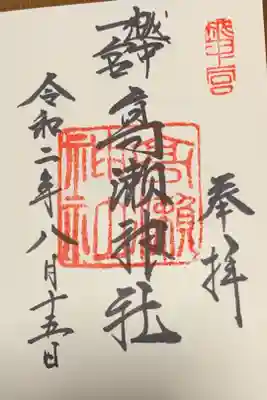 越中一宮
奉拝
越中
一宮
高瀬神社
高瀬
神社
令和二年八月十五日